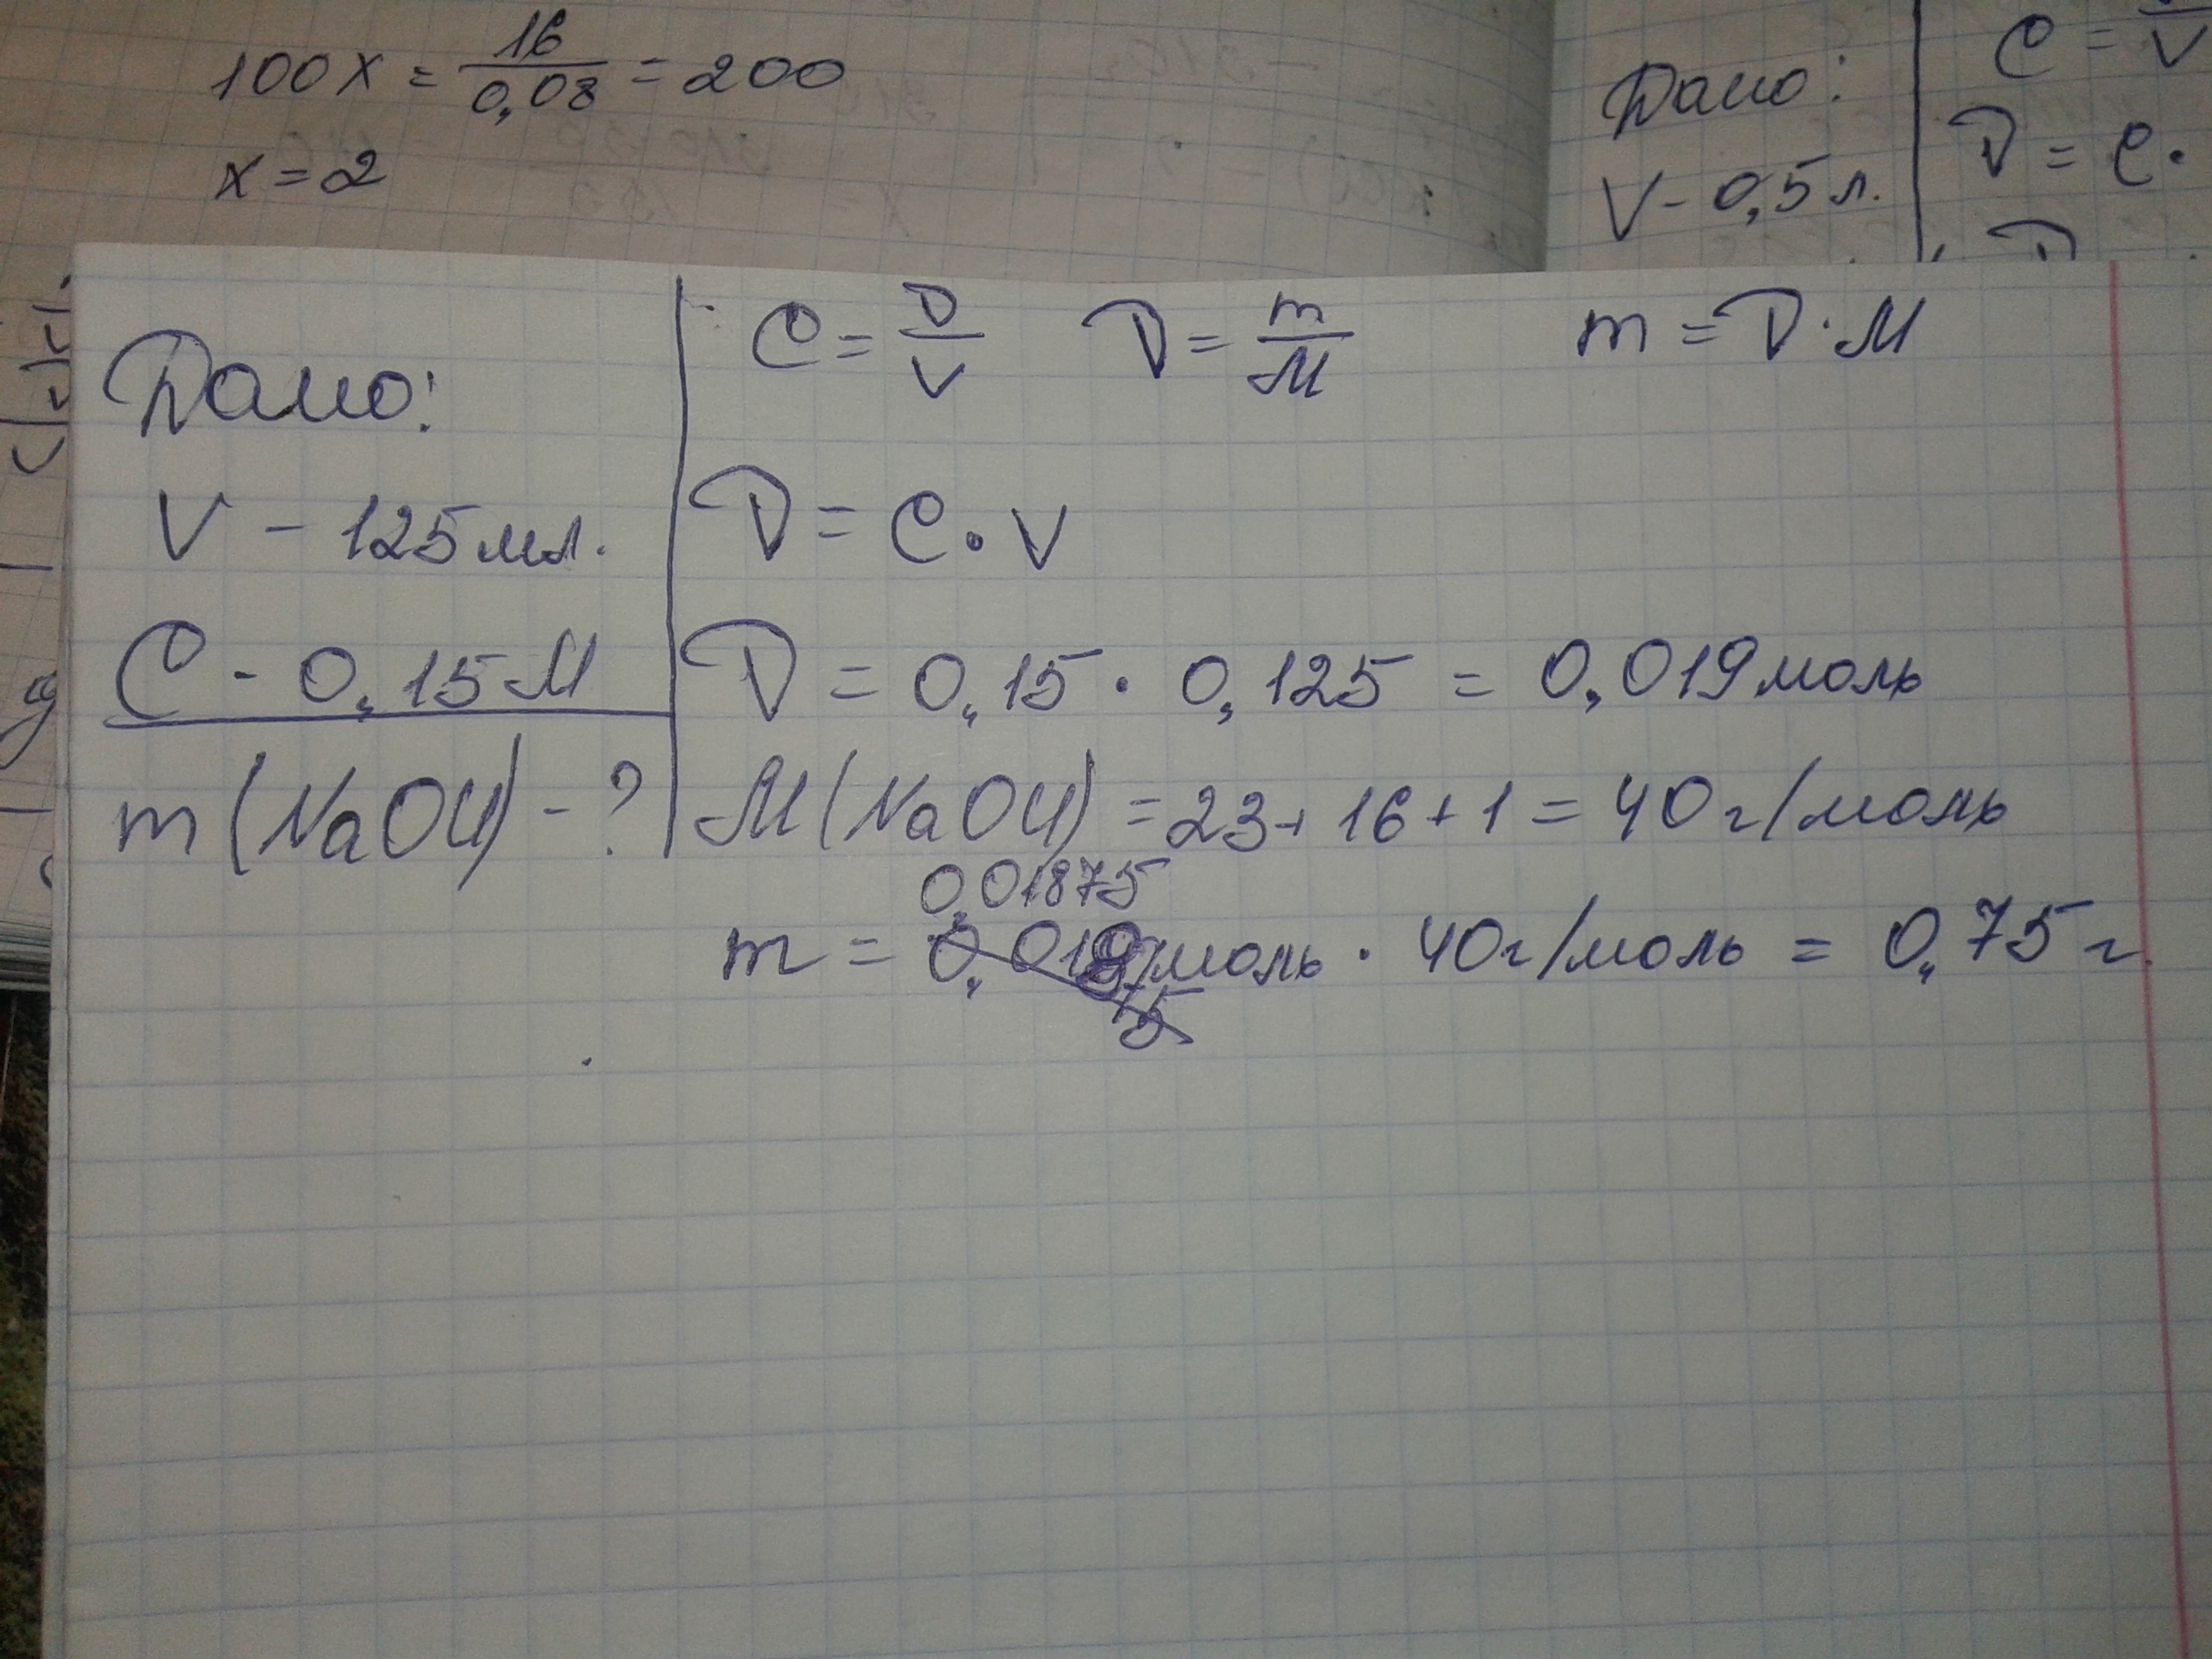 100x = 16/0,08 = 200
x = 2
Дано:
V - 0,5 л.
C = /V
V = C ·
Дано:
V - 125 мл.
C - 0,15 M
m (NaOH) - ?
C = V/V V = m/M m = V · M
V = C · V
V = 0,15 · 0,125 = 0,019 моль
M (NaOH) = 23 + 16 + 1 = 40 г/моль
0,01875
m = моль · 40 г/моль = 0,75 г.